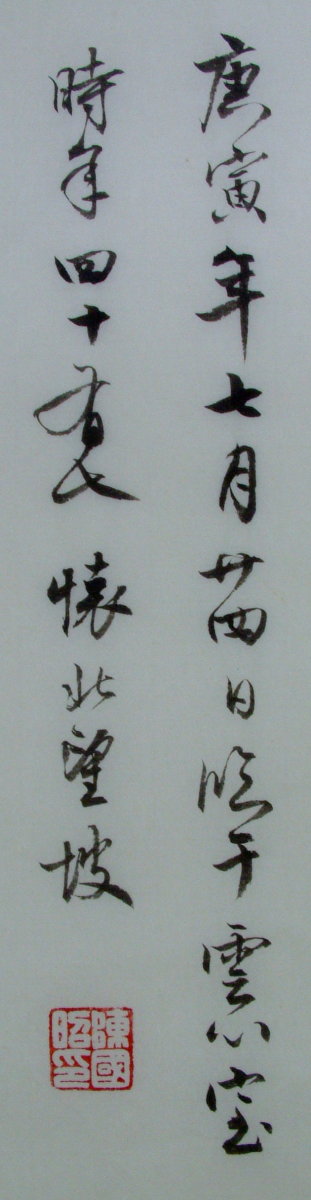 庚寅年七月廿四日臨于雲心室
時年四十有七 懷北望坡
陳國昭印